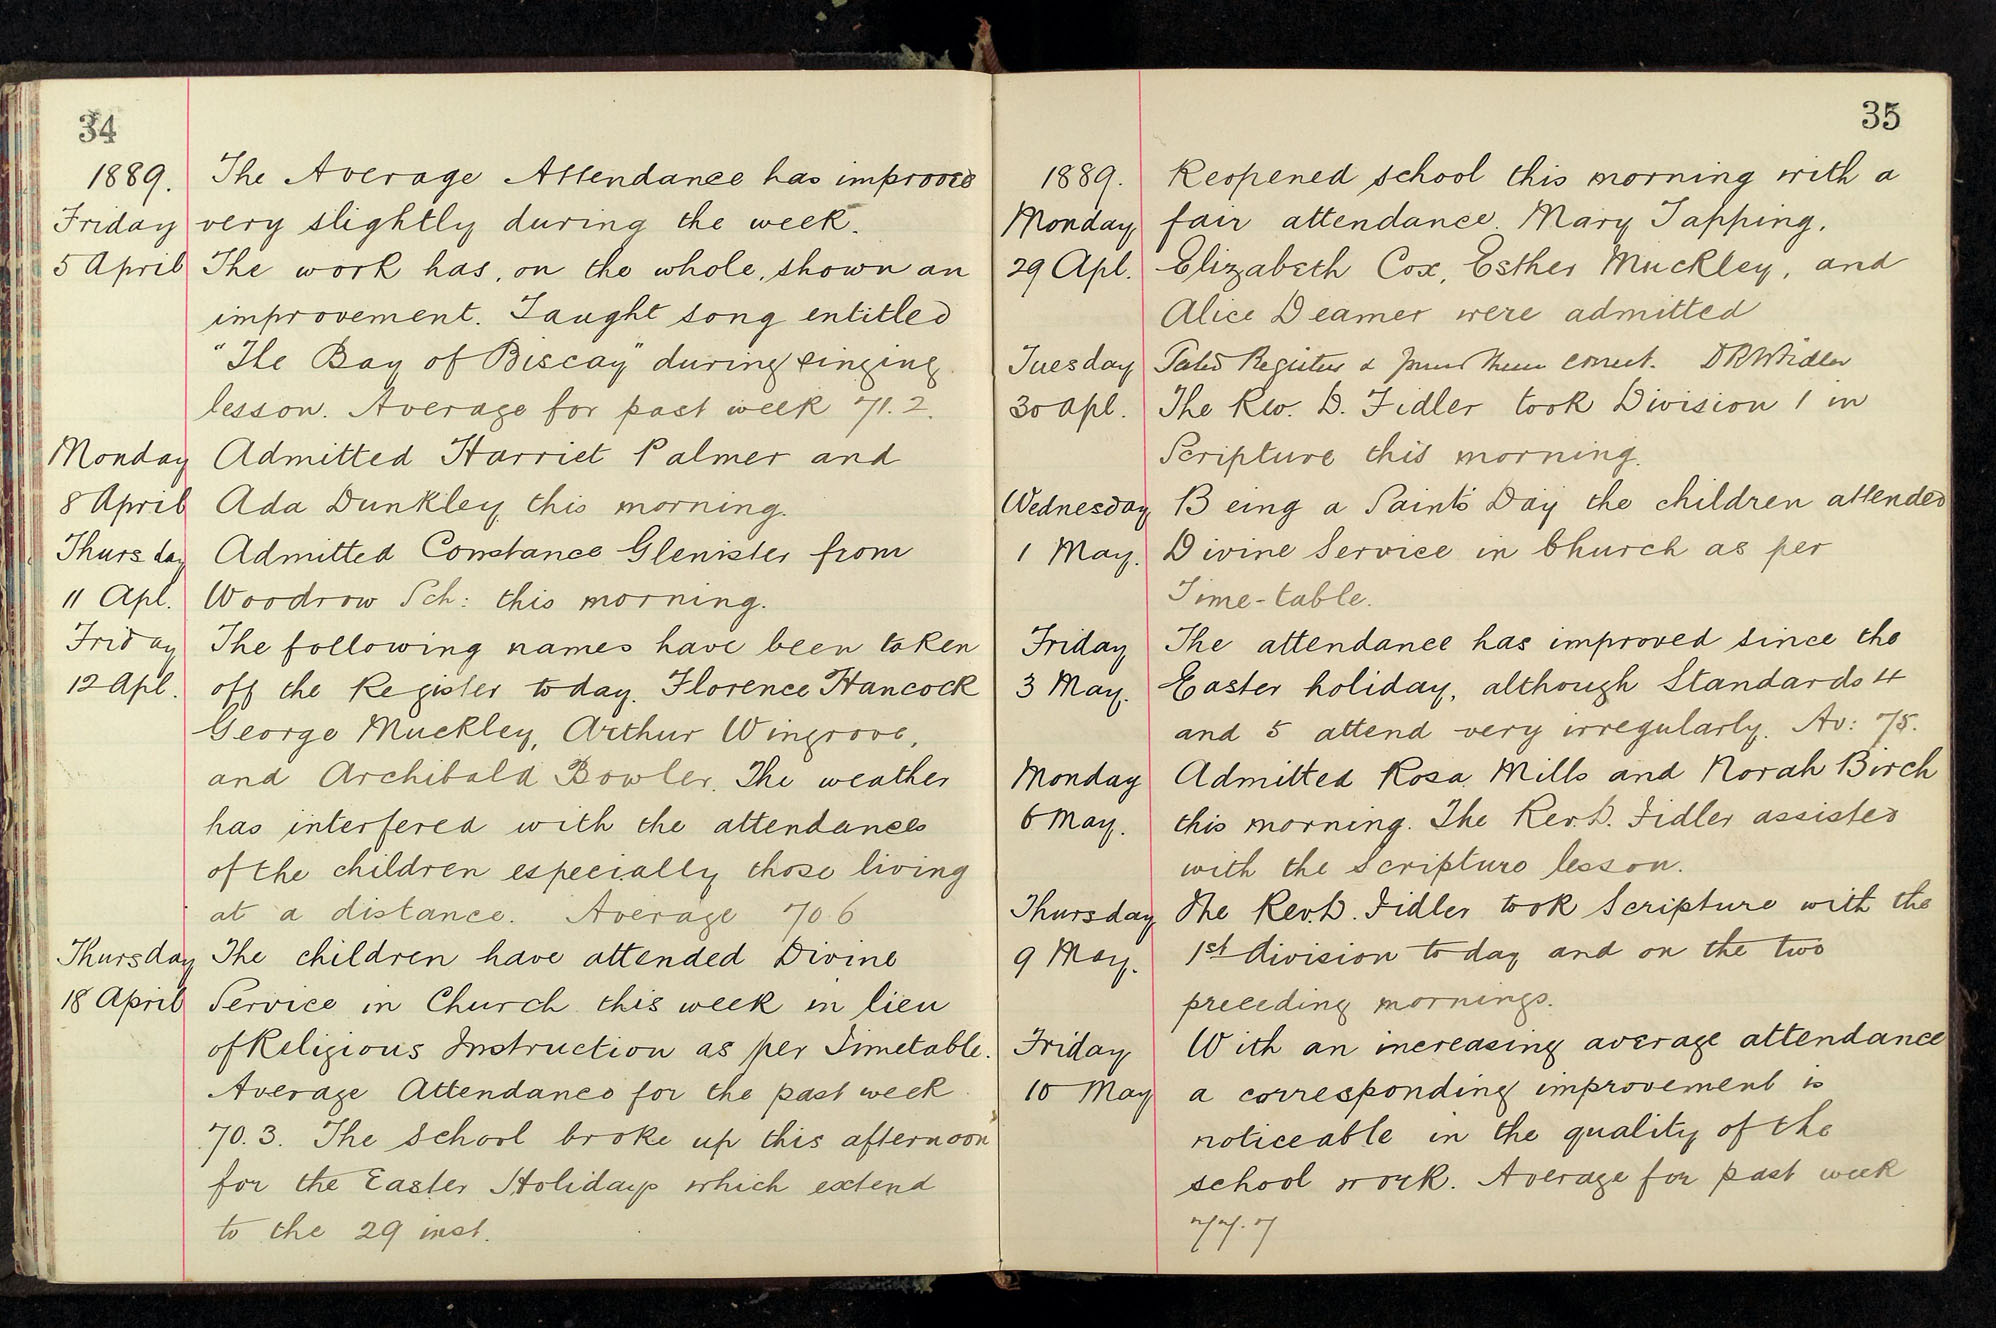 34
1889. The Average Attendance has improved
Friday very slightly during the week.
5 April The work has, on the whole, shown an
improvement. Taught song entitled
"The Bay of Biscay" during singing
lesson. Average for past week 71.2.
Monday Admitted Harriet Palmer and
8 April Ada Dunkley this morning.
Thursday Admitted Constance Glenister from
11 Apl. Woodrow Sch: this morning.
Friday The following names have been taken
12 Apl. off the Register today. Florence Hancock
George Muckley, Arthur Wingrove,
and Archibald Bowler. The weather
has interfered with the attendances
of the children especially those living
at a distance. Average 70.6
Thursday The children have attended Divine
18 April Service in Church this week in lieu
of Religious Instruction as per Timetable.
Average Attendance for the past week
70.3. The School broke up this afternoon
for the Easter Holidays which extend
to the 29 inst.
35
1889. Reopened school this morning with a
Monday fair attendance. Mary Tapping,
29 Apl. Elizabeth Cox, Esther Muckley, and
Alice Deamer were admitted
Tuesday Tested Registers & found them correct. D R W Fidler
30 Apl. The Rev. D. Fidler took Division 1 in
Scripture this morning.
Wednesday Being a Saint's Day the children attended
1 May. Divine Service in Church as per
Time-table.
Friday The attendance has improved since the
3 May. Easter holiday, although Standards 4
and 5 attend very irregularly. Av: 75.
Monday Admitted Rosa Mills and Norah Birch
6 May. this morning. The Rev. D. Fidler assisted
with the Scripture lesson.
Thursday The Rev. D. Fidler took Scripture with the
9 May. 1st division today and on the two
preceding mornings.
Friday With an increasing average attendance
10 May a corresponding improvement is
noticeable in the quality of the
school work. Average for past week
77.7